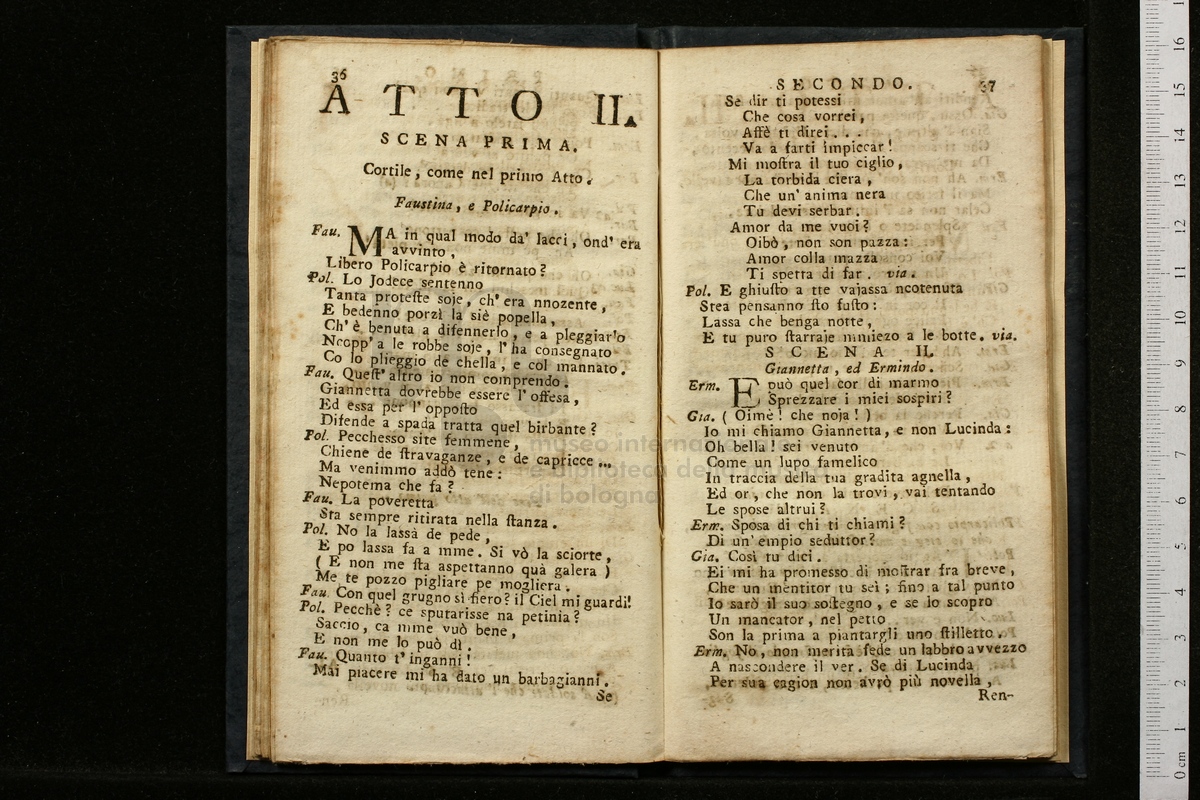 36
ATTO II.
SCENA PRIMA.
Cortile, come nel primo Atto.
Faustina, e Policarpio.
Fau. MA in qual modo da' lacci, ond' era
avvinto,
Libero Policarpio è ritornato?
Pol. Lo Jodece sentenno
Tanta proteſte soje, ch' era nnozente,
E bedenno porzì la siè popella,
Ch' è benuta a difennerlo, e a pleggiarlo
Ncopp' a le robbe soje, l' ha consegnato
Co lo plieggio de chella, e col mannato.
Fau. Queſt' altro io non comprendo.
Giannetta dovrebbe essere l' offesa,
Ed essa per l' oppoſto
Difende a spada tratta quel birbante?
Pol. Pecchesso site femmene,
Chiene de ſtravaganze, e de capricce ...
Ma venimmo addò tene:
Nepotema che fa?
Fau. La poveretta
Sta sempre ritirata nella ſtanza.
Pol. No la lassà de pede,
E po lassa fa a mme. Si vò la sciorte,
( E non me ſta aspettanno quà galera )
Me te pozzo pigliare pe mogliera.
Fau. Con quel grugno sì fiero? il Ciel mi guardi!
Pol. Pecchè? ce sputarisse na petinia?
Saccio, ca mme vuò bene,
E non me lo può dì.
Fau. Quanto t' inganni!
Mai piacere mi ha dato un barbagianni.
Se
SECONDO. 37
Se dir ti potessi
Che cosa vorrei,
Affè ti direi...
Va a farti impiccar!
Mi moſtra il tuo ciglio,
La torbida ciera,
Che un' anima nera
Tu devi serbar.
Amor da me vuoi?
Oibò, non son pazza:
Amor colla mazza
Ti spetta di far. via.
Pol. E ghiuſto a tte vajassa ncotenuta
Stea pensanno ſto fuſto:
Lassa che benga notte,
E tu puro ſtarraje mmiezo a le botte. via.
SCENA II.
Giannetta, ed Ermindo.
Erm. E può quel cor di marmo
Sprezzare i miei sospiri?
Gia. ( Oimè! che noja! )
Io mi chiamo Giannetta, e non Lucinda:
Oh bella! sei venuto
Come un lupo famelico
In traccia della tua gradita agnella,
Ed or, che non la trovi, vai tentando
Le spose altrui?
Erm. Sposa di chi ti chiami?
Di un' empio seduttor?
Gia. Così tu dici.
Ei mi ha promesso di moſtrar fra breve,
Che un mentitor tu sei; fino a tal punto
Io sarò il suo soſtegno, e se lo scopro
Un mancator, nel petto
Son la prima a piantargli uno ſtilletto.
Erm. No, non merita fede un labbro avvezzo
A nascondere il ver. Se di Lucinda
Per sua cagion non avrò più novella,
Ren-
museo internazionale
e biblioteca della musica
di bologna